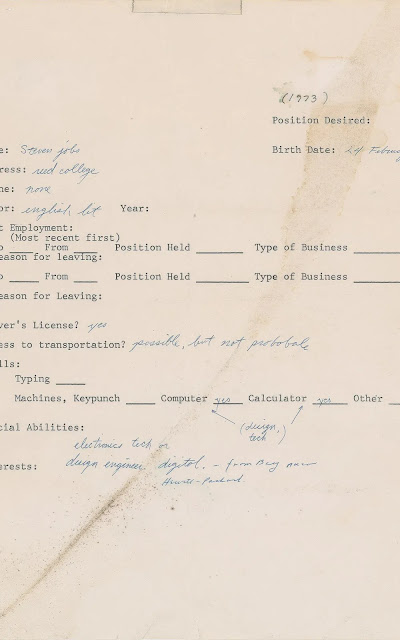 (1973)
Position Desired:
e: Steven jobs Birth Date: 24 Februa
ress: reed college
ne: none
or: english lit Year:
t Employment:
(Most recent first)
o From Position Held Type of Business
eason for leaving:
o From Position Held Type of Business
eason for Leaving:
ver's License? yes
ess to transportation? possible, but not probobale
lls:
Typing
Machines, Keypunch Computer yes Calculator yes Other
(design, tech)
cial Abilities:
electronics tech or
erests: design engineer. digital. - from Bay near
Hewitt-Packard